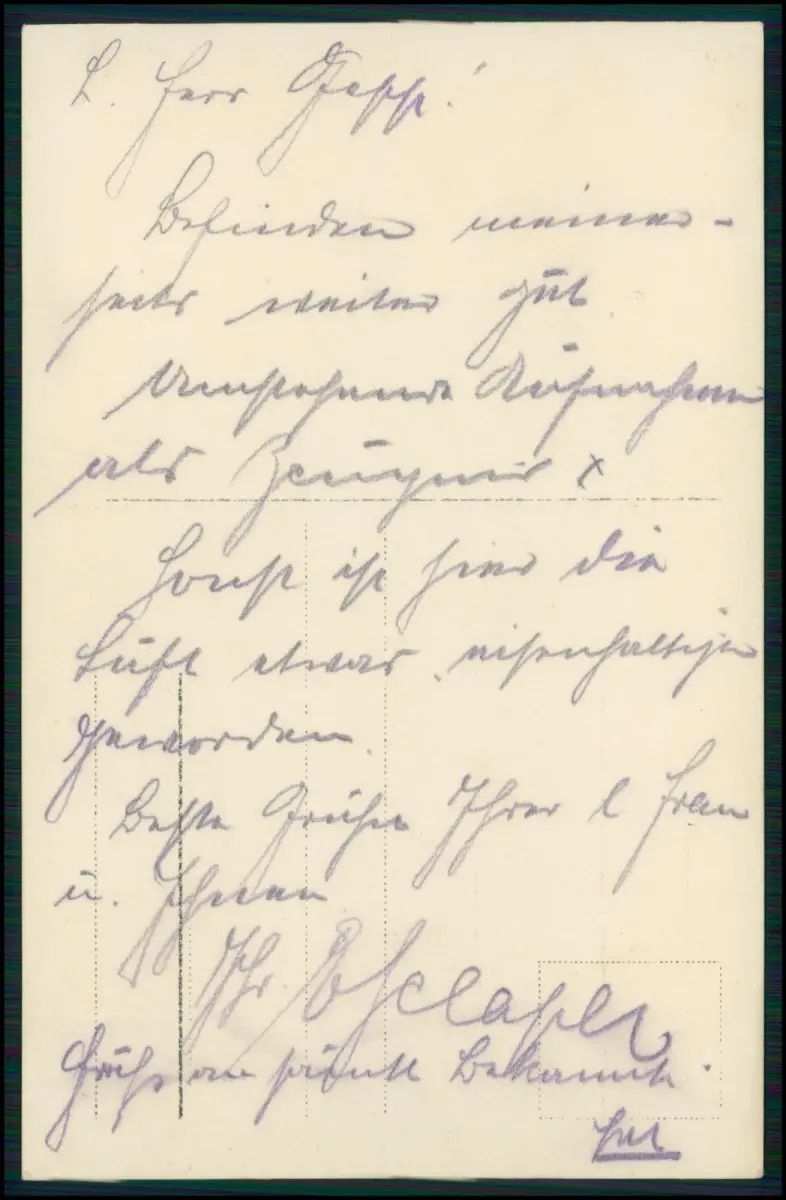 L. Herr Jepp!
Befinden meiner-
seits weiter gut.
Umstehende Aufnahmen
als Zeugnis x
Sonst ist hier die
Luft etwas eisenhaltiger
geworden.
Beste Grüße Ihrer l Frau
u. Ihnen
Ihr
Grüße an sämtl Bekannte.